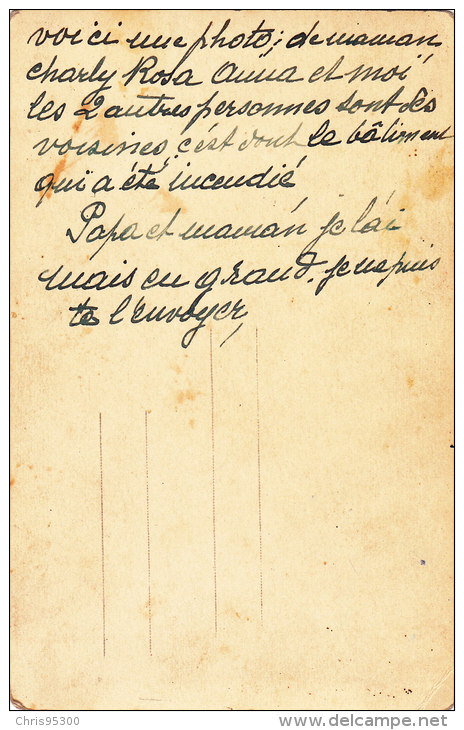 voici une photo; de maman
charly Rosa Anna et moi
les 2 autres personnes sont des
voisines, c'est dont le bâtiment
qui a été incendié
Papa et maman je l'ai
mais en grand. je ne puis
te l'envoyer,
Chris95300
http://www.delcampe.net